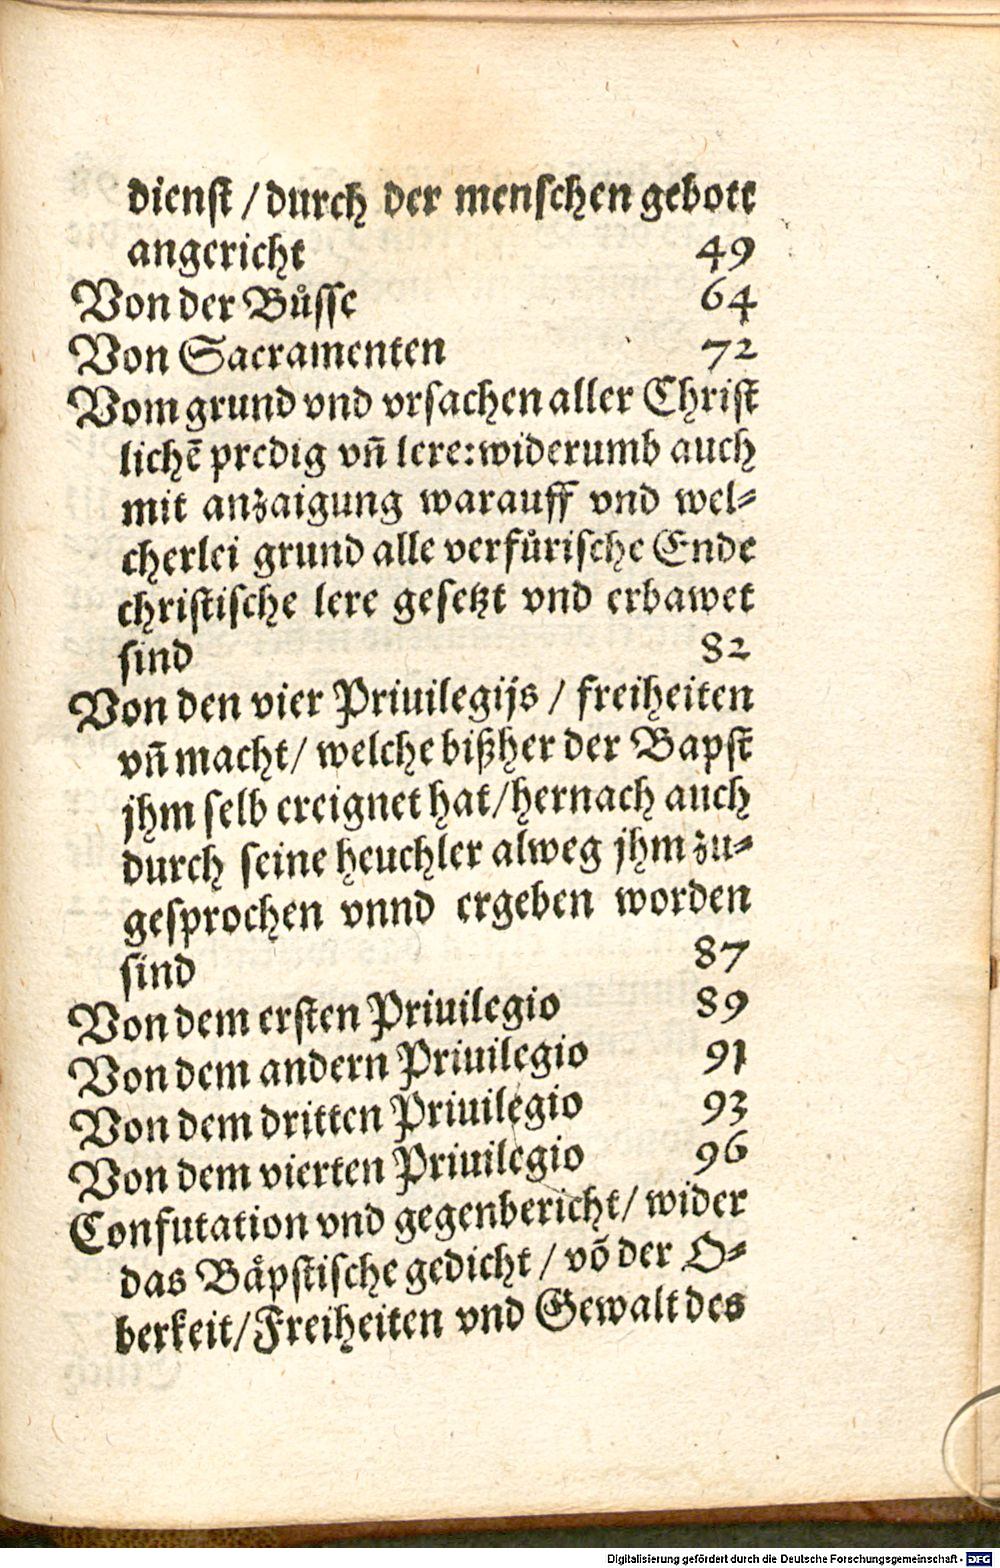 dienst / durch der menschen gebott
angericht 49
Von der Bůsse 64
Von Sacramenten 72
Vom grund vnd vrsachen aller Christ
lichẽ predig vñ lere: widerumb auch
mit anzaigung warauff vnd wel⸗
cherlei grund alle verfůrische Ende
christische lere gesetzt vnd erbawet
sind 82
Von den vier Priuilegijs / freiheiten
vñ macht / welche bißher der Bapst
jhm selb ereignet hat / hernach auch
durch seine heuchler alweg jhm zu⸗
gesprochen vnnd ergeben worden
sind 87
Von dem ersten Priuilegio 89
Von dem andern Priuilegio 91
Von dem dritten Priuilegio 93
Von dem vierten Priuilegio 96
Confutation vnd gegenbericht / wider
das Bäpstische gedicht / võ der O⸗
berkeit / Freiheiten vnd Gewalt des
Digitalisierung gefördert durch die Deutsche Forschungsgemeinschaft - DFG